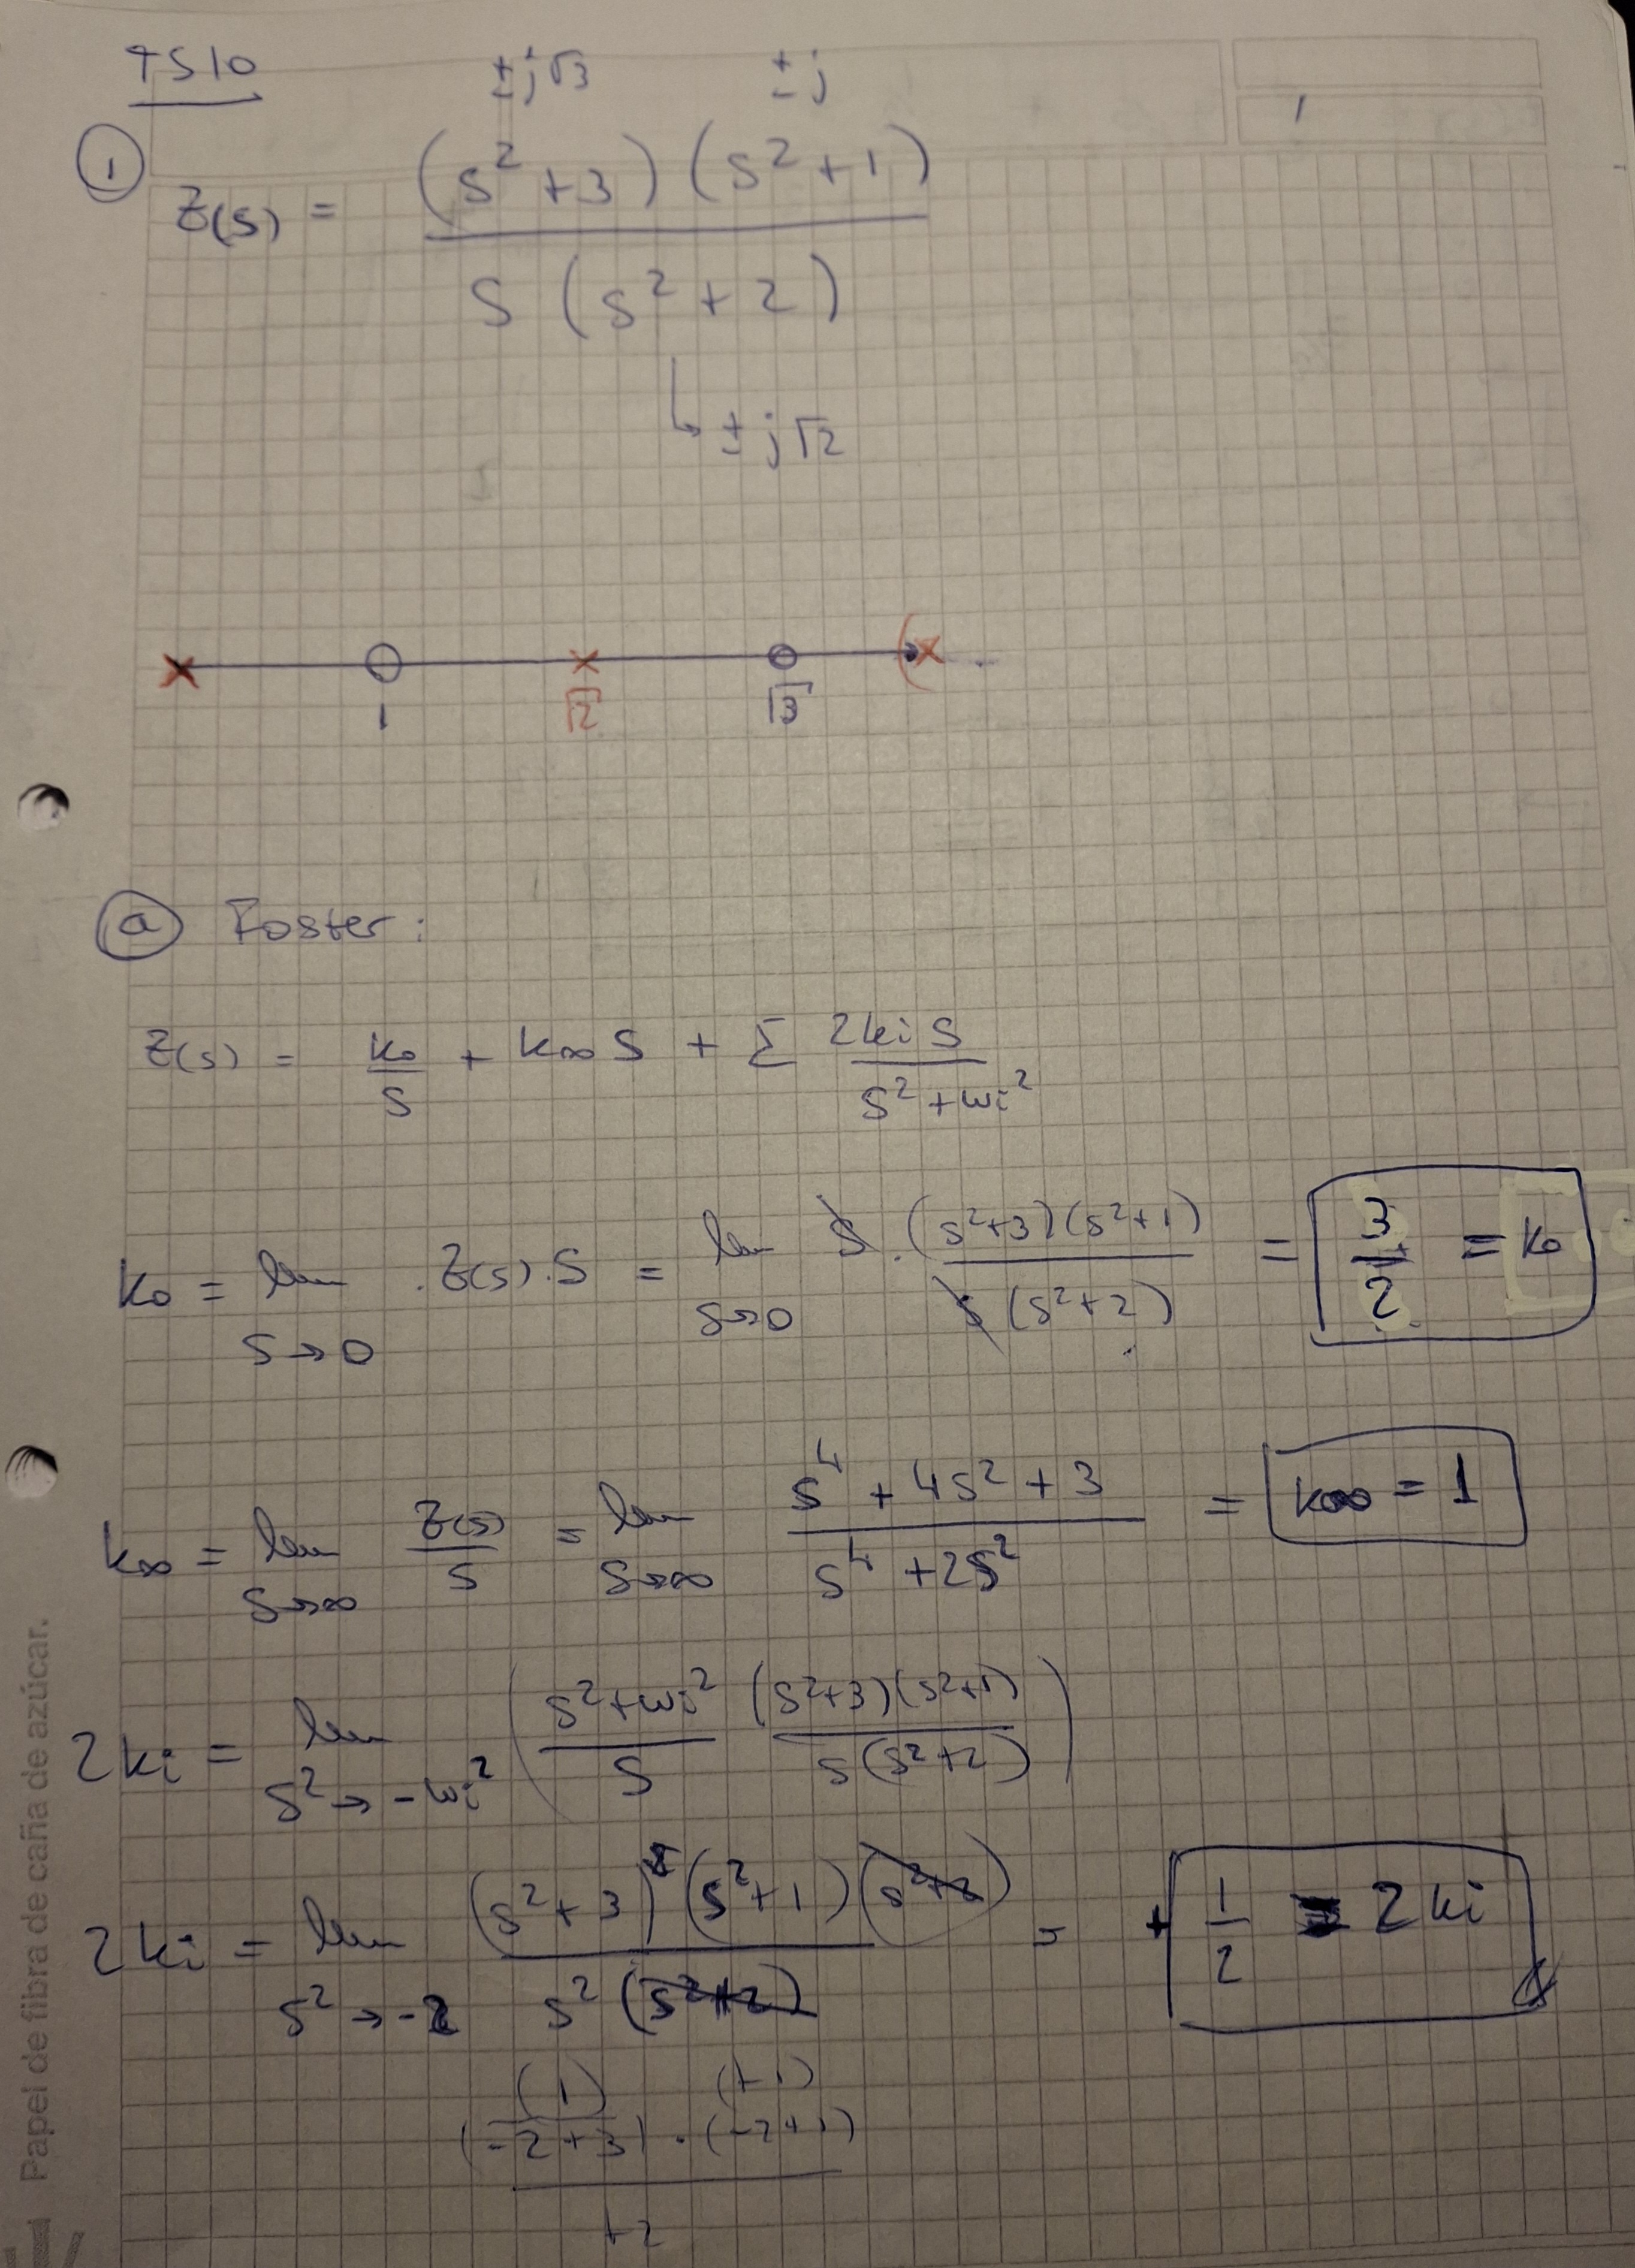 TS10
±j√3 ±j
① Z(s) = (s²+3)(s²+1) / s(s²+2)
↳ ±j√2
1 √2 √3
ⓐ Foster:
Z(s) = k₀/s + k∞ s + Σ 2ki s / (s²+ωi²)
k₀ = lim s→0 . Z(s) . s = lim s→0 s . (s²+3)(s²+1) / s(s²+2) = 3/2 = k₀
k∞ = lim s→∞ Z(s)/s = lim s→∞ (s⁴+4s²+3) / (s⁴+2s²) = k∞ = 1
2ki = lim s²→-ωi² ( (s²+ωi²)/s (s²+3)(s²+1) / s(s²+2) )
2ki = lim s²→-2 (s²+3)(s²+1)(s²+2) / s²(s²+2) = + 1/2 = 2ki
(1) (+1)
(-2+3) . (-2+1)
+2
Papel de fibra de caña de azúcar.